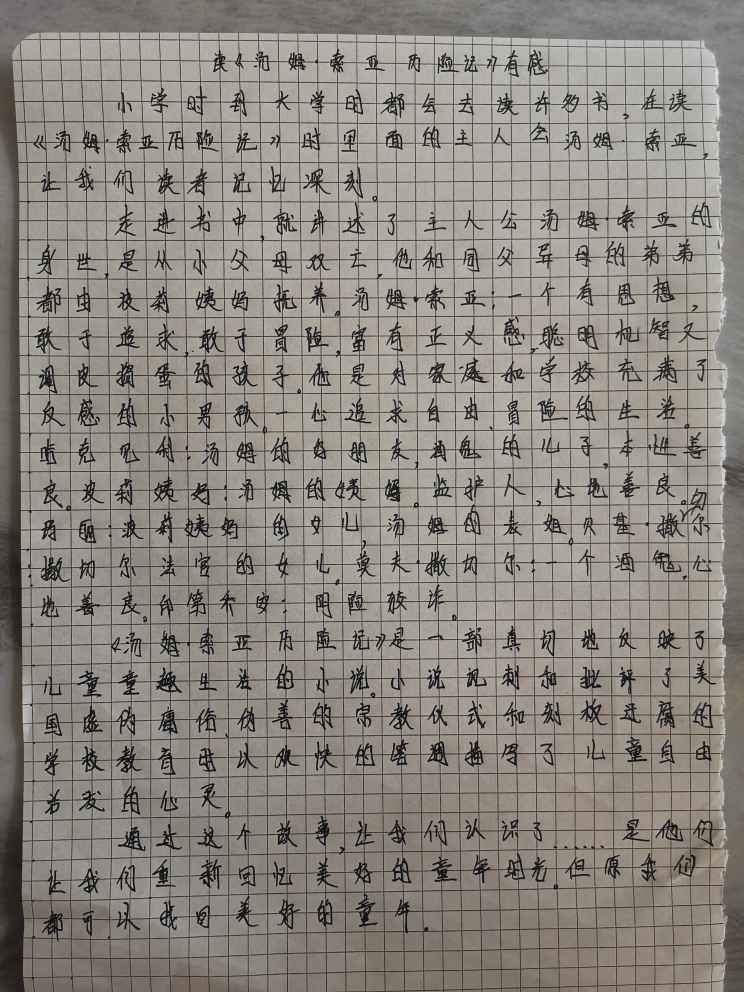 读《汤姆·索亚历险记》有感
小学时到大学时都会去读许多书,在读
《汤姆·索亚历险记》时里面的主人公汤姆·索亚,
让我们读者记忆深刻。
走进书中,就讲述了主人公汤姆·索亚的
身世,是从小父母双亡,他和同父异母的弟弟
都由波莉姨妈抚养。汤姆·索亚:一个有思想,
敢于追求,敢于冒险,富有正义感,聪明机智又
调皮捣蛋的孩子。他是对家庭和学校充满了
反感的小男孩。一心追求自由、冒险的生活。
肯克见利:汤姆的好朋友,酒鬼的儿子,本性善
良。波莉姨妈:汤姆的姨妈。监护人,心地善良。
玛丽:波莉姨妈的女儿,汤姆的表姐。贝基·撒切尔
:撒切尔法官的女儿。莫夫·撒切尔:一个酒鬼,心
地善良。印第乔安:阴险狡诈。
《汤姆·索亚历险记》是一部真切地反映了
儿童童趣生活的小说。小说讽刺和批评了美
国虚伪庸俗、伪善的宗教仪式和刻板迂腐的
学校教育时以欢快的笔调描写了儿童自由
活发的心灵。
通过这个故事,让我们认识了……是他们
让我们重新回忆美好的童年时光。但愿我们
都可以找回美好的童年。